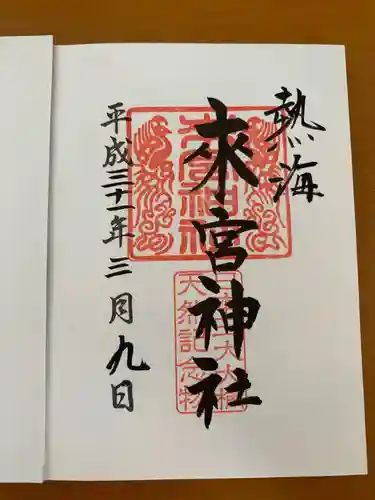 熱海
來宮神社
平成三十一年三月九日
來宮神社
日本三大大楠
天然記念物